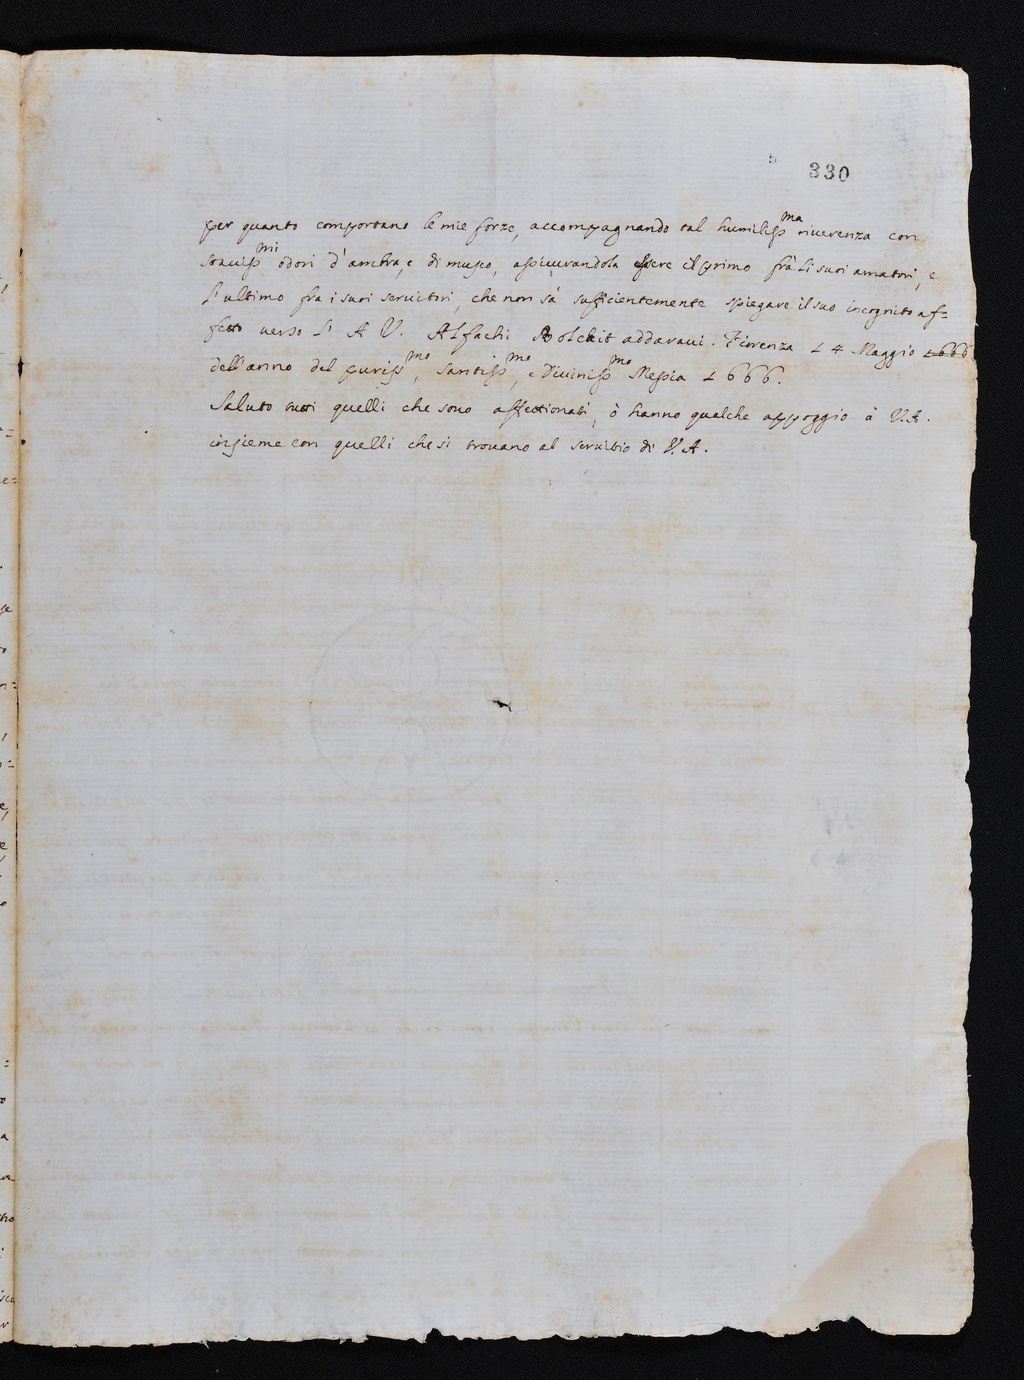 330
per quanto comportano le mie forze, accompagnando tal humilissma riuerenza con
soauissmi odori d'ambra, e di musco, assicurandola essere il primo frà li suoi amatori, e
l'ultimo fra i suoi seruitori, che non sà sufficientemente spiegare il suo incognito af=
fetto uerso l'A V. Alfachi Bolchit addaraui. Fiorenza 14 Maggio 1666
dell'anno del purissmo, santissmo, e Diuinissmo Messia 1666.
Saluto tutti quelli che sono affettionati, ò hanno qualche appoggio à V.A.
insieme con quelli che si trouano al seruitio di V.A.